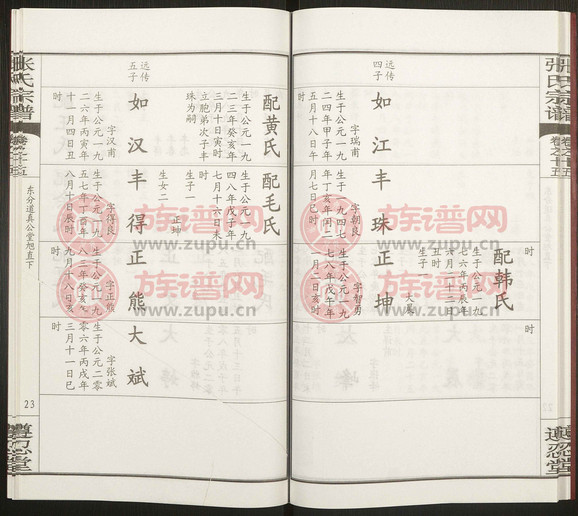 张氏宗谱
卷之十五
道忍堂
时
配韩氏
生于公元一九
七六年丙辰年
六月二十二日
丑时
生子一
大晟
时
远传
四子
如江
字瑞甫
生于公元一九
二四年甲子年
四月十八日午
时
丰珠
字朝良
生于公元一九四七
年丁亥年闰二
月七日巳时
正坤
字智勇
生于公元一九
七八年戊午年
一月二日亥时
配黄氏
生于公元一九
二三年癸亥年
三月十日寅时
立胞弟次子丰
珠为嗣
配毛氏
生于公元一九
四八年戊子年
七月十六日未
时
生子一
正坤
生女二
远传
五子
如汉
字汉甫
生于公元一九
二六年丙寅年
十一月四日丑
时
丰得
字得良
生于公元一九
五七年丁酉年
八月十日辰时
正熊
字正熊
生于公元一九
八三年癸亥年
九月十八日亥
时
大斌
字张斌
生于公元二零
零六年丙戌年
三月十一日巳
时
张氏宗谱
卷之十五
东分道真公堂旭直下
23
道忍堂
族谱网
www.zupu.cn
族谱网
www.zupu.cn